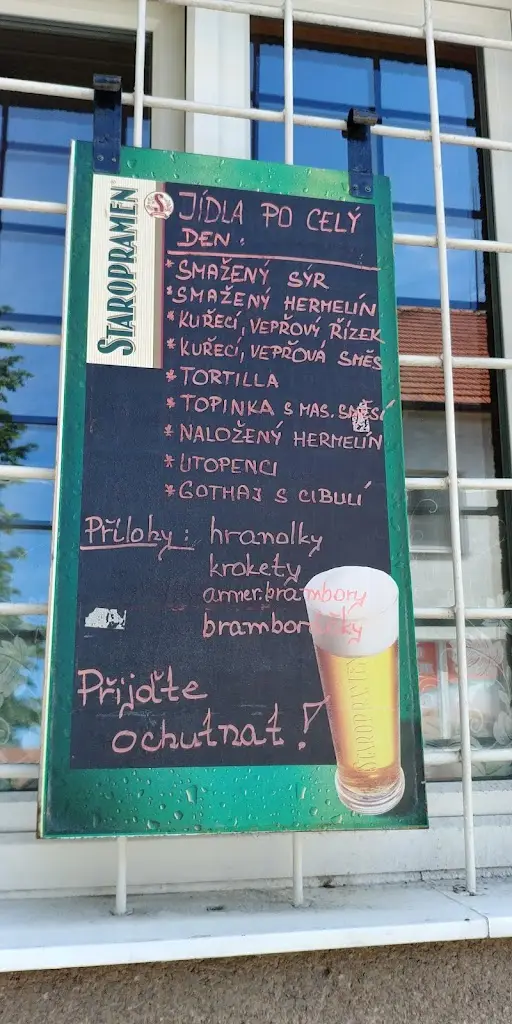 STAROPRAMEN
S
JÍDLA PO CELÝ
DEN:
*SMAŽENÝ SÝR
*SMAŽENÝ HERMELÍN
*KUŘECÍ, VEPŘOVÝ ŘÍZEK
*KUŘECÍ, VEPŘOVÁ SMĚS
*TORTILLA
*TOPINKA S MAS. SMĚSÍ
*NALOŽENÝ HERMELÍN
*UTOPENCI
*GOTHAJ S CIBULÍ
Přílohy: hranolky
krokety
amer.brambory
bramboráčky
Přijďte
ochutnat!
STAROPRAMEN